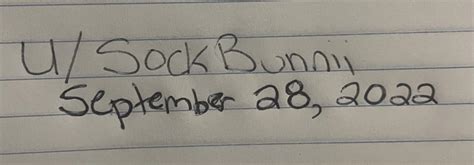 U/SockBunnii
September 28, 2022